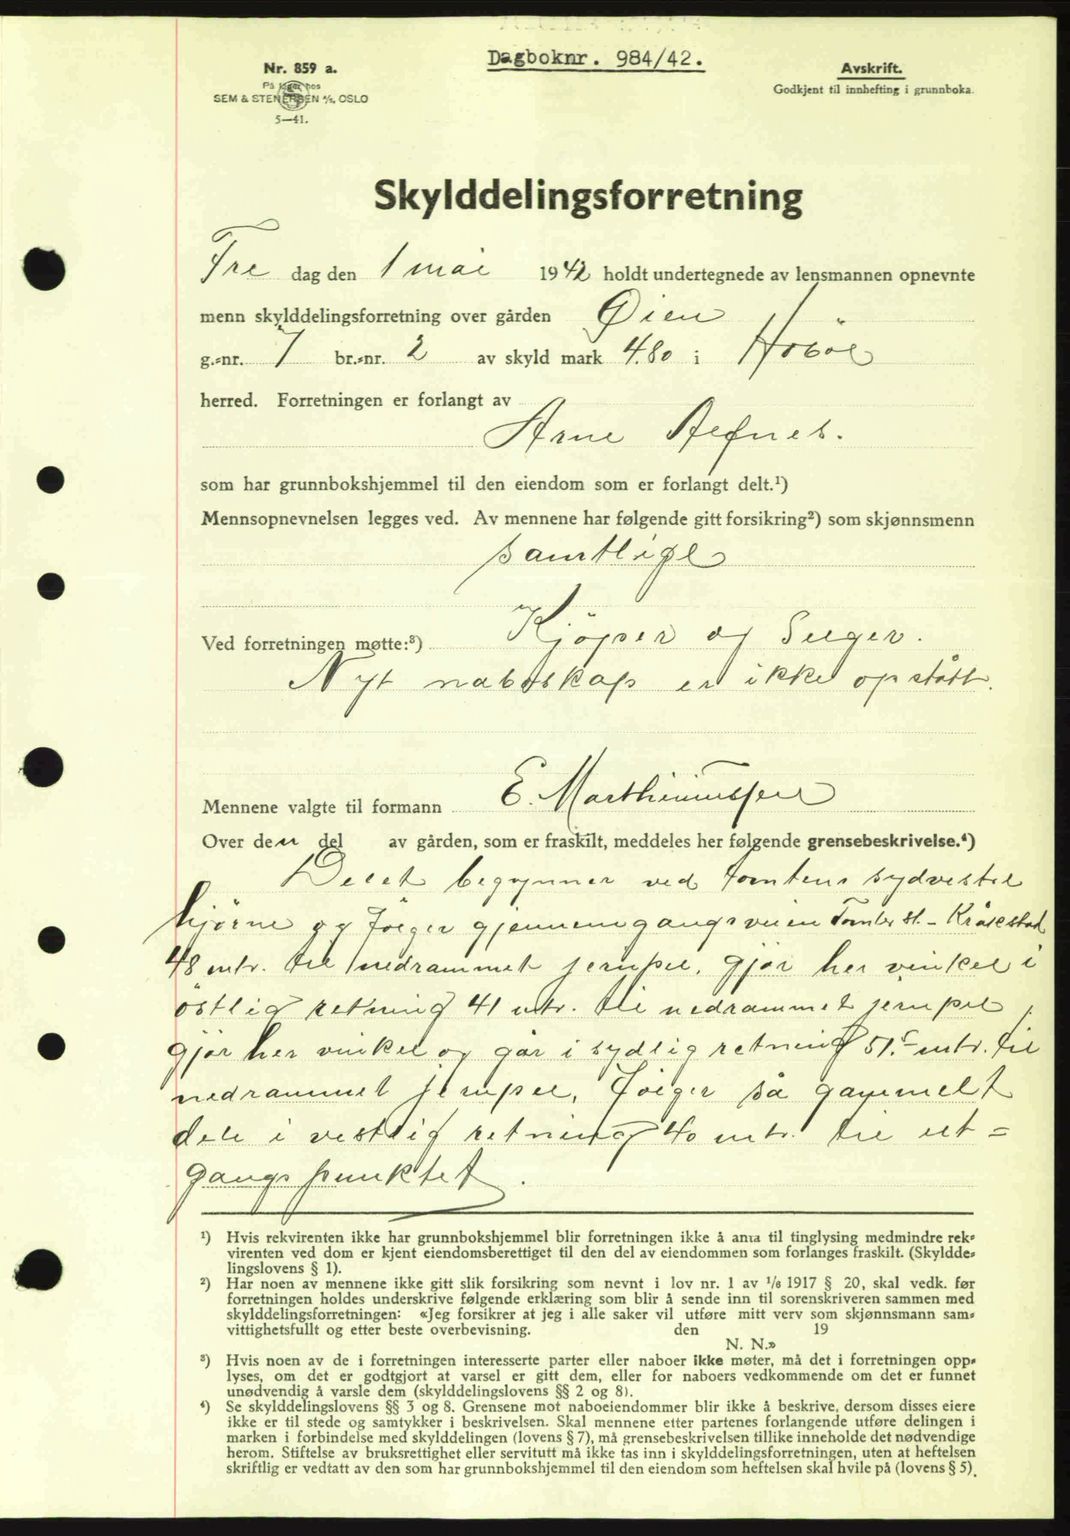 Dagboknr. 984/42.
Nr. 859 a.
På lager hos
SEM & STENERSEN A/S. OSLO
5—41.
Avskrift.
Godkjent til innhefting i grunnboka.
Skylddelingsforretning
Fre dag den 1 mai 1942 holdt undertegnede av lensmannen opnevnte
menn skylddelingsforretning over gården Øien
g.-nr. 7 br.-nr. 2 av skyld mark 4.80 i Hobøl
herred. Forretningen er forlangt av
Arne
som har grunnbokshjemmel til den eiendom som er forlangt delt.¹)
Mennsopnevnelsen legges ved. Av mennene har følgende gitt forsikring²) som skjønnsmenn
samtlige
Ved forretningen møtte:³) Kjöper og Selger.
Nyt naboskap er ikke opstått.
Mennene valgte til formann E. Marthinussen
Over den del av gården, som er fraskilt, meddeles her følgende grensebeskrivelse.⁴)
Delet begynner ved tomtens sydvestre
hjörne og fölger gjennemgangsveien Tomter st. - Kråkstad
48 mtr. til nedrammet jernpel, gjör her vinkel i
östlig retning 41 mtr. til nedrammet jernpel,
gjör her vinkel og går i sydlig retning 51.5 mtr. til
nedrammet jernpel, fölger så gammelt
dele i vestlig retning 40 mtr. til ut=
gangspunktet.
¹) Hvis rekvirenten ikke har grunnbokshjemmel blir forretningen ikke å anta til tinglysing medmindre rek-
virenten ved dom er kjent eiendomsberettiget til den del av eiendommen som forlanges fraskilt. (Skyldde-
lingslovens § 1).
²) Har noen av mennene ikke gitt slik forsikring som nevnt i lov nr. 1 av 1/6 1917 § 20, skal vedk. før
forretningen holdes underskrive følgende erklæring som blir å sende inn til sorenskriveren sammen med
skylddelingsforretningen: «Jeg forsikrer at jeg i alle saker vil utføre mitt verv som skjønnsmann sam-
vittighetsfullt og etter beste overbevisning. den 19
N. N.»
³) Hvis noen av de i forretningen interesserte parter eller naboer ikke møter, må det i forretningen opp-
lyses, om det er godtgjort at varsel er gitt dem, eller for naboers vedkommende om det er funnet
unødvendig å varsle dem (skylddelingslovens §§ 2 og 8).
⁴) Se skylddelingslovens §§ 3 og 8. Grensene mot naboeiendommer blir ikke å beskrive, dersom disses eiere
ikke er til stede og samtykker i beskrivelsen. Skal mennene etter partenes forlangende utføre delingen i
marken i forbindelse med skylddelingen (lovens § 7), må grensebeskrivelsen tillike inneholde det nødvendige
herom. Stiftelse av bruksrettighet eller servitutt må ikke tas inn i skylddelingsforretningen, uten at heftelsen
skriftlig er vedtatt av den som har grunnbokshjemmel til den eiendom som heftelsen skal hvile på (lovens § 5).